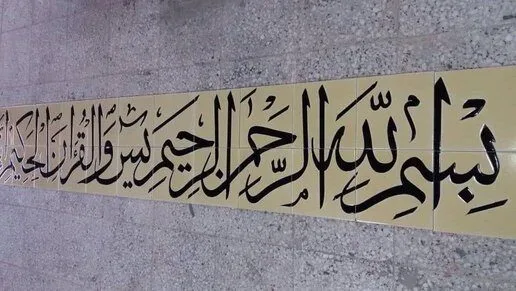 بِسْمِ اللّٰهِ الرَّحْمٰنِ الرَّحِيمِ يٰسٓ وَالْقُرْآنِ الْحَكِيمِ